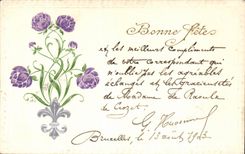 Bonne fêtes
et les meilleurs compliments
de votre correspondant qui
n'oublie pas les agréables
échanges et
de Madame de Raoule
du Crozet
Bruxelles, le 13 août 1903